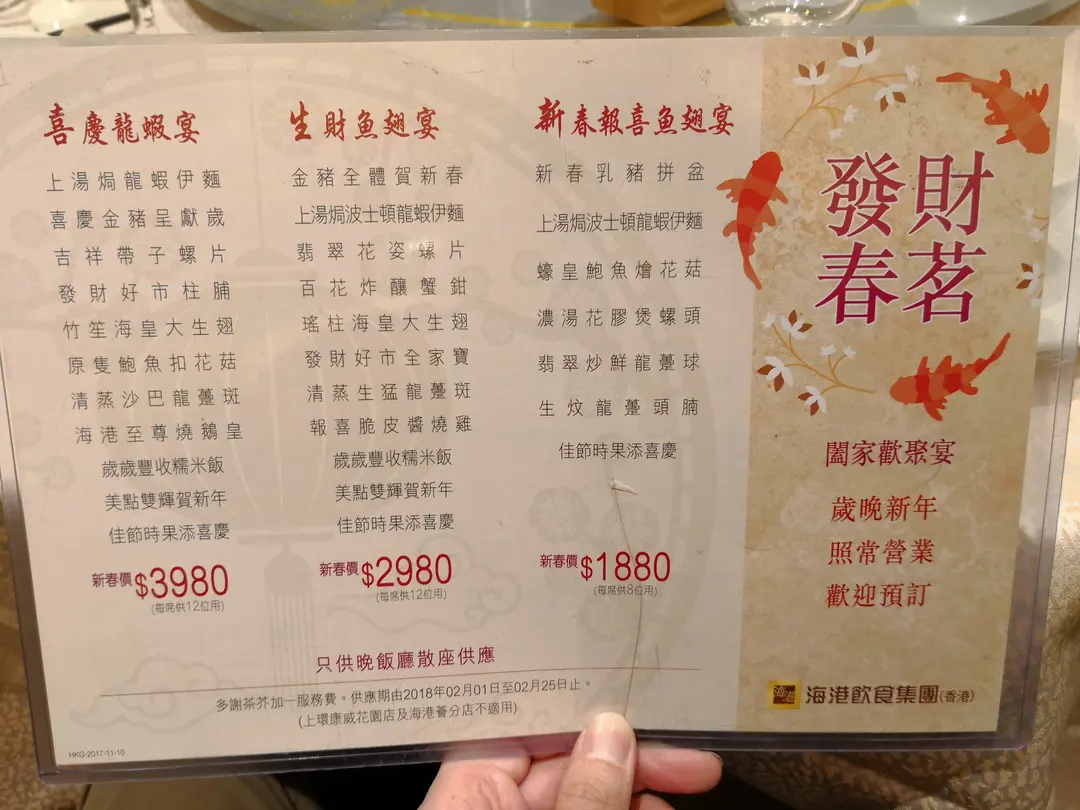 喜慶龍蝦宴
上湯焗龍蝦伊麵
喜慶金豬呈獻歲
吉祥帶子螺片
發財好市柱脯
竹笙海皇大生翅
原隻鮑魚扣花菇
清蒸沙巴龍躉斑
海港至尊燒鵝皇
歲歲豐收糯米飯
美點雙輝賀新年
佳節時果添喜慶
新春價$3980
(每席供12位用)
生財魚翅宴
金豬全體賀新春
上湯焗波士頓龍蝦伊麵
翡翠花姿螺片
百花炸釀蟹鉗
瑤柱海皇大生翅
發財好市全家寶
清蒸生猛龍躉斑
報喜脆皮醬燒雞
歲歲豐收糯米飯
美點雙輝賀新年
佳節時果添喜慶
新春價$2980
(每席供12位用)
新春報喜魚翅宴
新春乳豬拼盆
上湯焗波士頓龍蝦伊麵
蠔皇鮑魚燴花菇
濃湯花膠煲螺頭
翡翠炒鮮龍躉球
生炆龍躉頭腩
佳節時果添喜慶
新春價$1880
(每席供8位用)
只供晚飯廳散座供應
多謝茶芥加一服務費。供應期由2018年02月01日至02月25日止。
(上環康威花園店及海港薈分店不適用)
HKG-2017-11-10
發財
春茗
闔家歡聚宴
歲晚新年
照常營業
歡迎預訂
海港
海港飲食集團(香港)